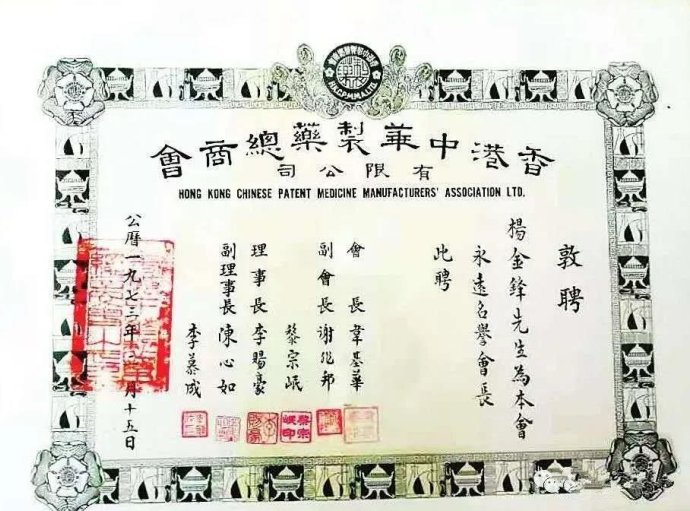 香港中華製藥總商會
有限公司
HONG KONG CHINESE PATENT MEDICINE MANUFACTURERS' ASSOCIATION LTD.
敦聘
楊金鋒先生為本會
永遠名譽會長
此聘
會長韋基華
副會長謝兆邦
黎宗岷
理事長李賜豪
副理事長陳心如
李慕成
公曆一九七三年 月十五日